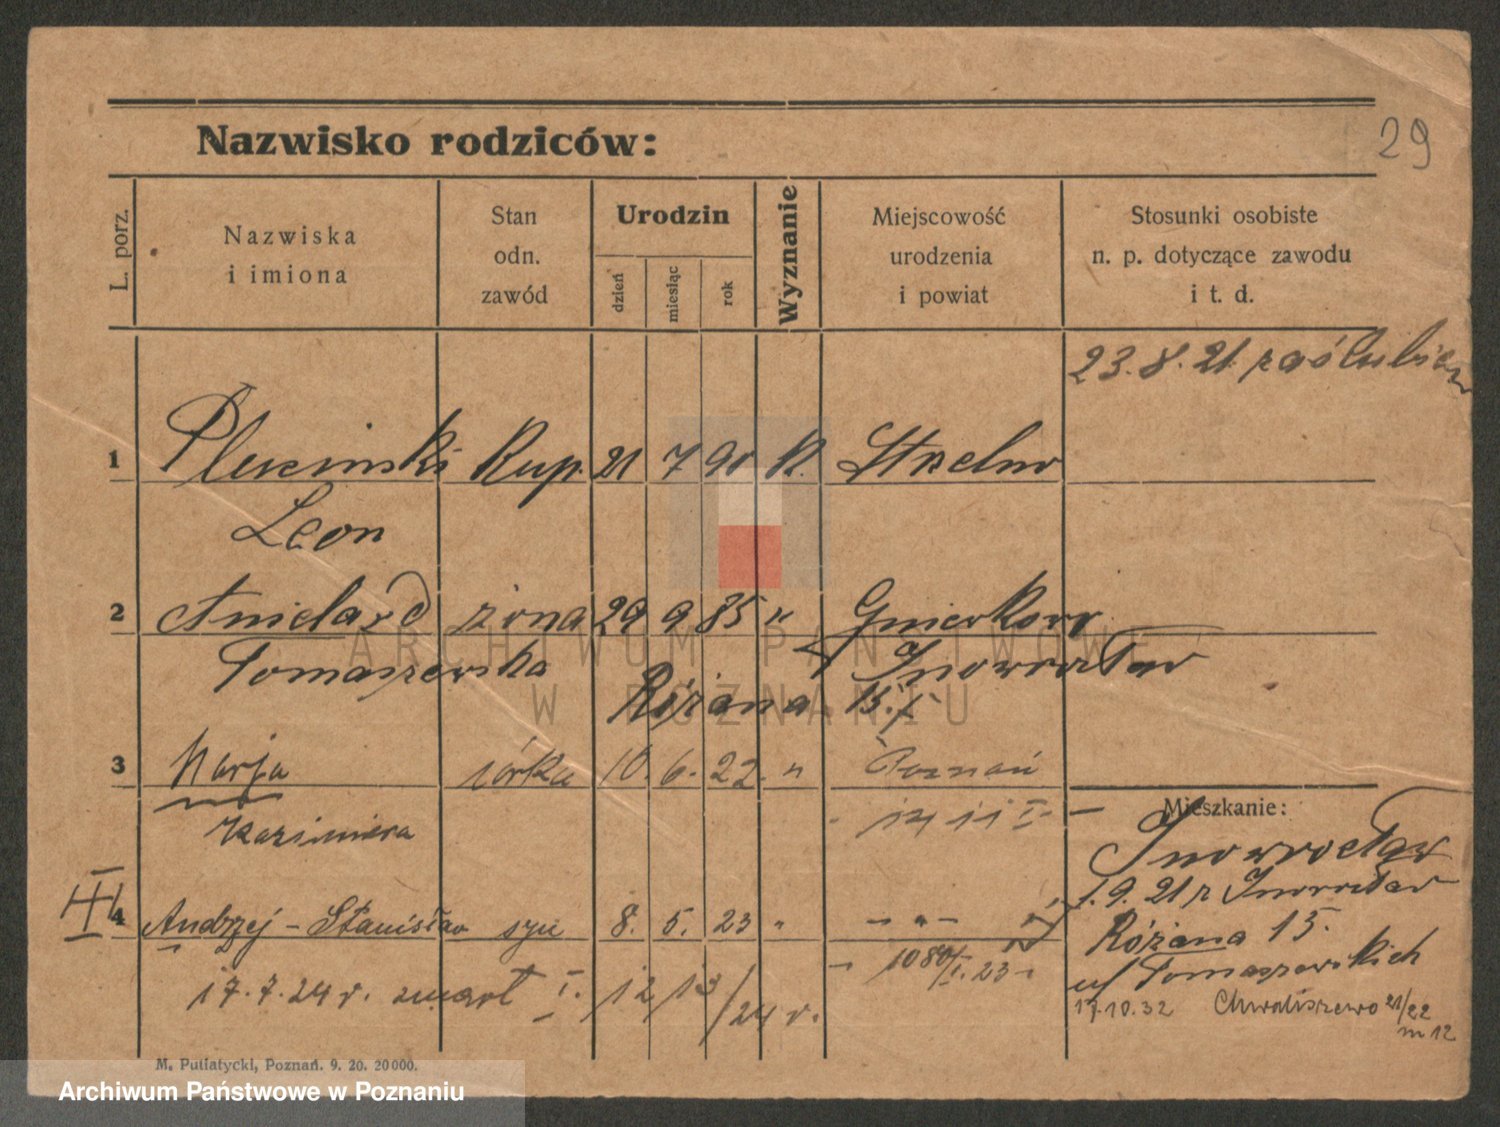 29
Nazwisko rodziców:
L. porz.
Nazwiska
i imiona
Stan
odn.
zawód
Urodzin
dzień
miesiąc
rok
Wyznanie
Miejscowość
urodzenia
i powiat
Stosunki osobiste
n. p. dotyczące zawodu
i t. d.
23.8.21.
1 Kup. 21 7 90 k. Strzelno
Leon
2 Aniela zd żona 29 9 85 " Gniewkowo
Tomaszewska Inowrocław
Różana 15.
3 Marja córka 10. 6. 22. " Poznań
Kazimiera
Mieszkanie:
Inowrocław
1.9.21 z Inowrocław
4 Andrzej - Stanisław syn 8. 5. 23 " - " -
Różana 15.
1080/I.23
17.7.24 r. zmarł I. /12/13/24 r.
u/ Tomaszewskich
17.10.32 Chwaliszewo 21/22
m 12
M. Putiatycki, Poznań. 9. 20. 20000.
ARCHIWUM PAŃSTWOWE
W POZNANIU
Archiwum Państwowe w Poznaniu